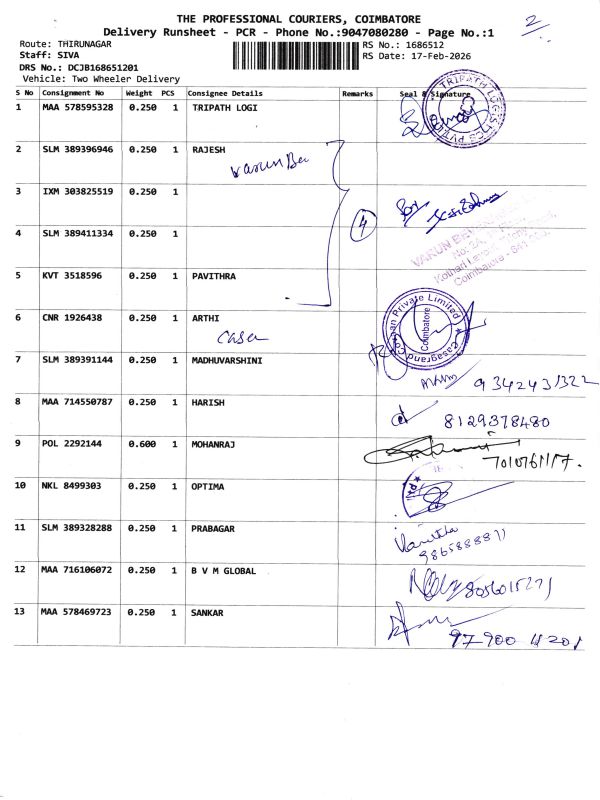 THE PROFESSIONAL COURIERS, COIMBATORE
2
Delivery Runsheet - PCR - Phone No.:9047080280 - Page No.:1
Route: THIRUNAGAR
RS No.: 1686512
Staff: SIVA
RS Date: 17-Feb-2026
DRS No.: DCJB168651201
Vehicle: Two Wheeler Delivery
S No Consignment No Weight PCS Consignee Details Remarks Seal & Signature
1 MAA 578595328 0.250 1 TRIPATH LOGI
TRIPATH LOGISTICS PVT LTD
2 SLM 389396946 0.250 1 RAJESH
Varun Be
3 IXM 303825519 0.250 1
4 SLM 389411334 0.250 1
4
VARUN BE
Kothari
Coimbatore - 641
5 KVT 3518596 0.250 1 PAVITHRA
6 CNR 1926438 0.250 1 ARTHI
Casa
Casagrand Co an Private Limited
Coimbatore
7 SLM 389391144 0.250 1 MADHUVARSHINI
9342431322
8 MAA 714550787 0.250 1 HARISH
8129378480
9 POL 2292144 0.600 1 MOHANRAJ
7010761117.
10 NKL 8499303 0.250 1 OPTIMA
ltd
11 SLM 389328288 0.250 1 PRABAGAR
9865888871
12 MAA 716106072 0.250 1 B V M GLOBAL
8056015271
13 MAA 578469723 0.250 1 SANKAR
97900 11201